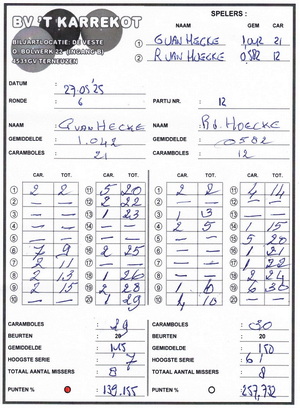 SPELERS :
BV 'T KARREKOT
NAAM GEM CAR
BILJARTLOCATIE: DE VESTE
D. BOLWERK 22 (INGANG B)
4531GV TERNEUZEN
1 G VAN HECKE 1,042 21
2 12
DATUM : 27-03-'25
RONDE : 6 PARTIJ NR. : 12
NAAM : G VAN HECKE NAAM :
GEMIDDELDE : 1.042 GEMIDDELDE : 0582
CARAMBOLES : 21 CARAMBOLES : 12
CAR. TOT. CAR. TOT. CAR. TOT. CAR. TOT.
1 2 2 11 5 20 1 2 2 11 4 14
2 — — 12 2 22 2 — — 12 — —
3 — — 13 1 23 3 1 3 13 — —
4 — — 14 — — 4 — — 14 1 15
5 — — 15 — — 5 — — 15 5 20
6 7 9 16 2 25 6 — — 16 1 21
7 2 11 17 — — 7 — — 17 1 22
8 2 13 18 1 26 8 — — 18 2 24
9 2 15 19 2 28 9 19 6 30
10 — — 20 1 29 10 4 10 20 — —
CARAMBOLES : 29 CARAMBOLES : 30
BEURTEN : 20 BEURTEN : 20
GEMIDDELDE : 1.45 GEMIDDELDE : 150
HOOGSTE SERIE : 7 HOOGSTE SERIE : 6
TOTAAL AANTAL MISSERS : 8 TOTAAL AANTAL MISSERS :
PUNTEN % : 139,155 PUNTEN % : 257,732